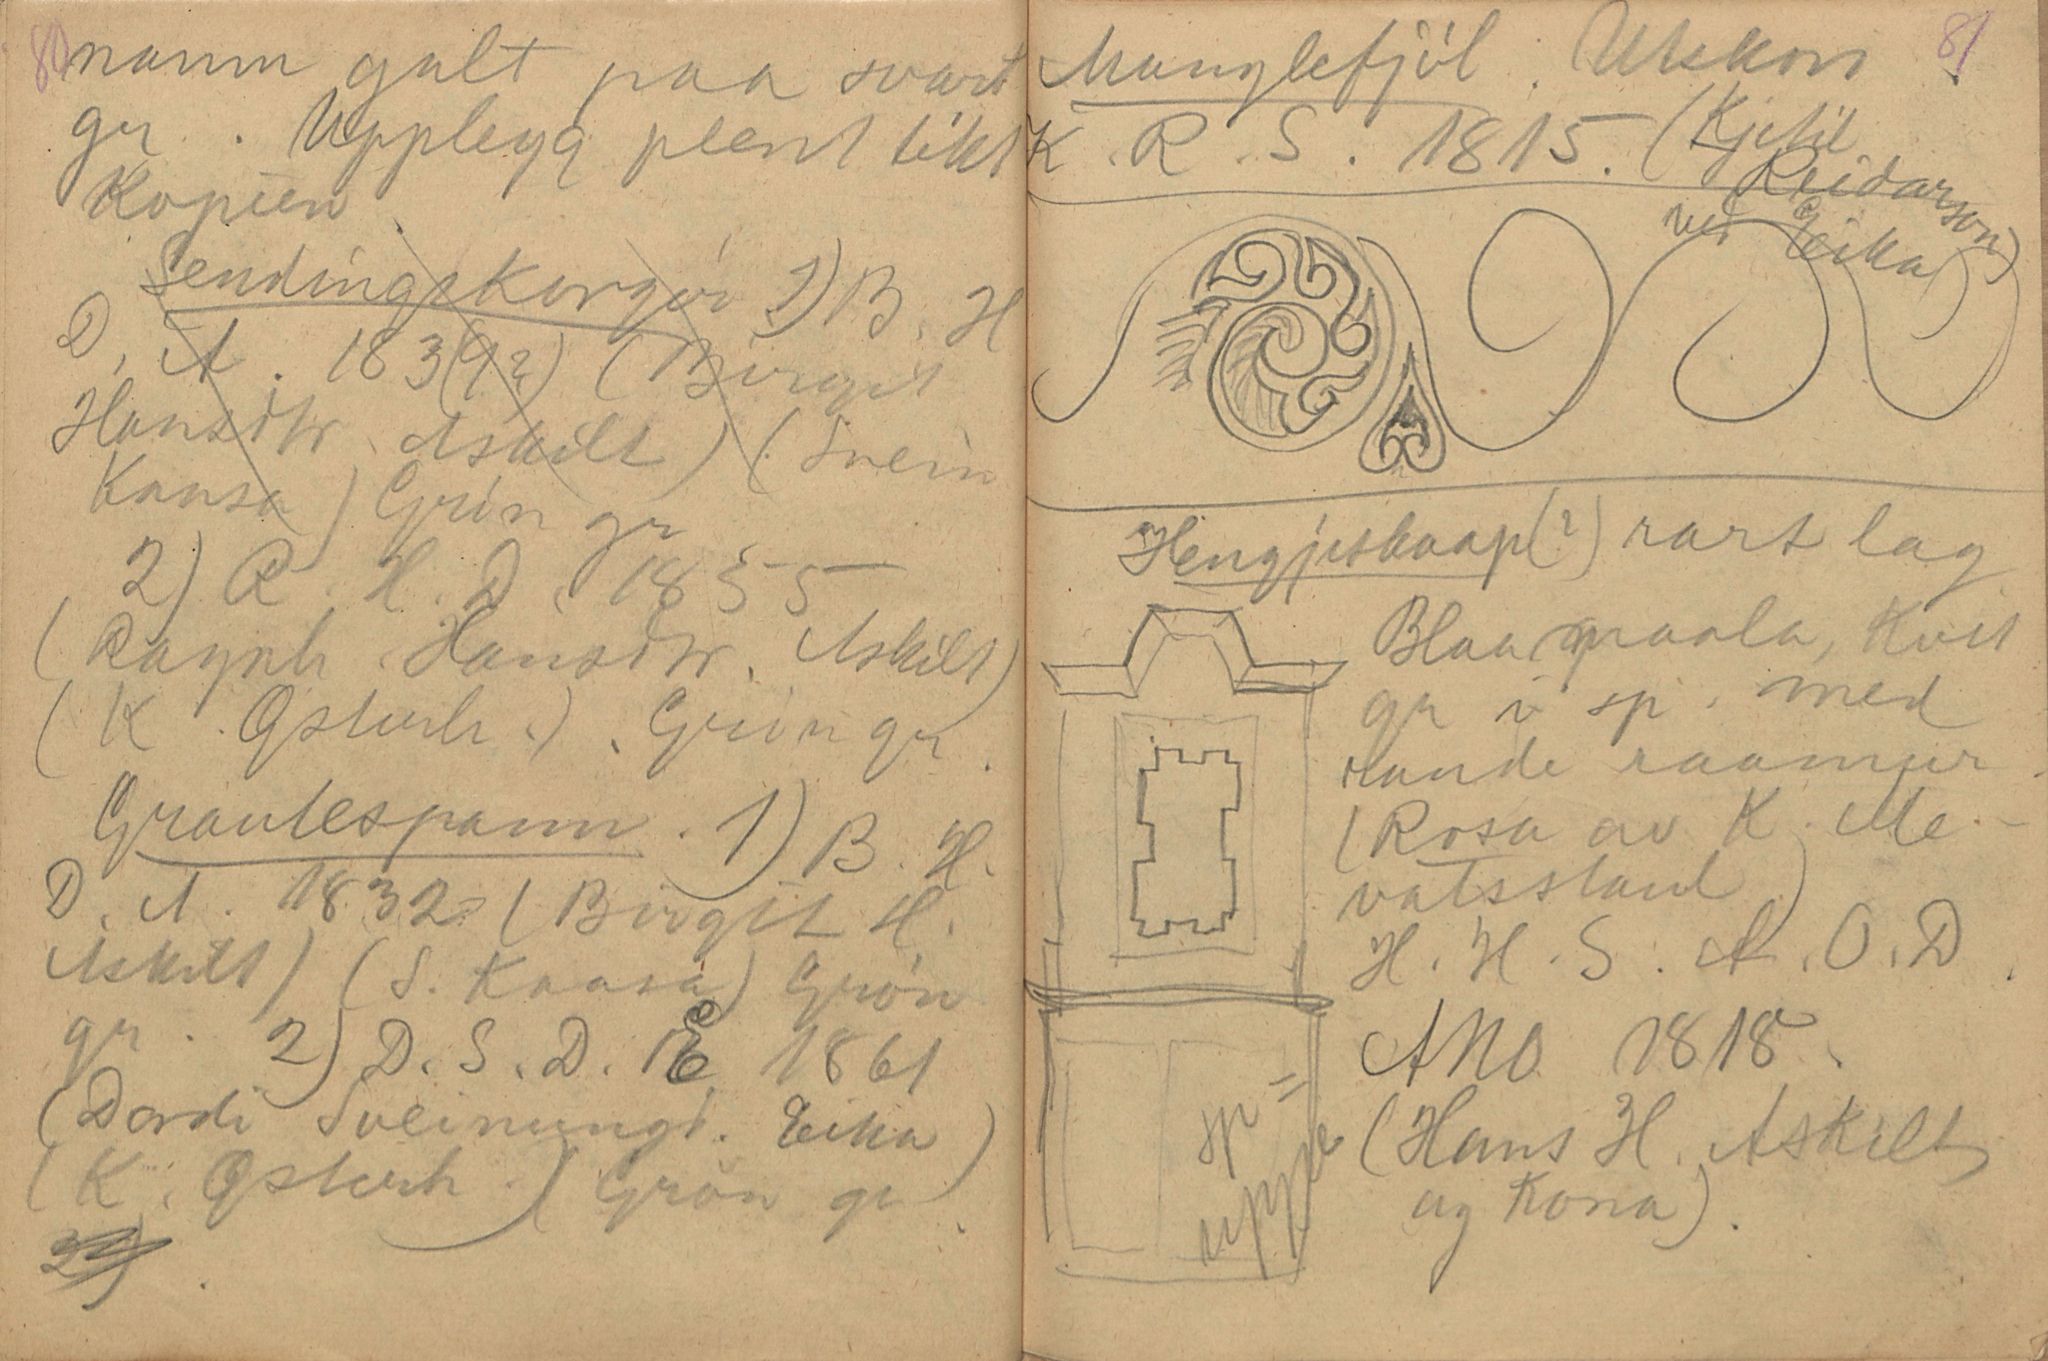 80
namn gult paa svart
gr. Upplegg plent likt
Kopien
Sendingskorgir 1) B. H
D. A. 183(9?) (Birgit
Hansdtr. Askilt) (Svein
Kaasa) Grön gr
2) R. H. D. 1855
(Ragnh. Hansdtr. Askilt)
(K. Qsterh.). Grön gr.
Grautespann. 1) B. H.
D. A. 1832 (Birgit H.
Askilt) (S. Kaasa) Grön
gr. 2) D. S. D. E 1861
(Dordi Sveinungd. Eika)
(K. Qsterh.) Grön gr.
81
Manglefjöl. Utskori
K. R. S. 1815. (Kjetil
Reidarson)
ve Eika
Hengjeskaap(?) rart lag
Blaa maala, kvit
gr i sp. med
raude raamur.
(Rosa av K. Me-
vatsstaul)
H. H. S. A. O. D.
ANO 1818.
(Hans H. Askilt
og kona).
sp =
uppe